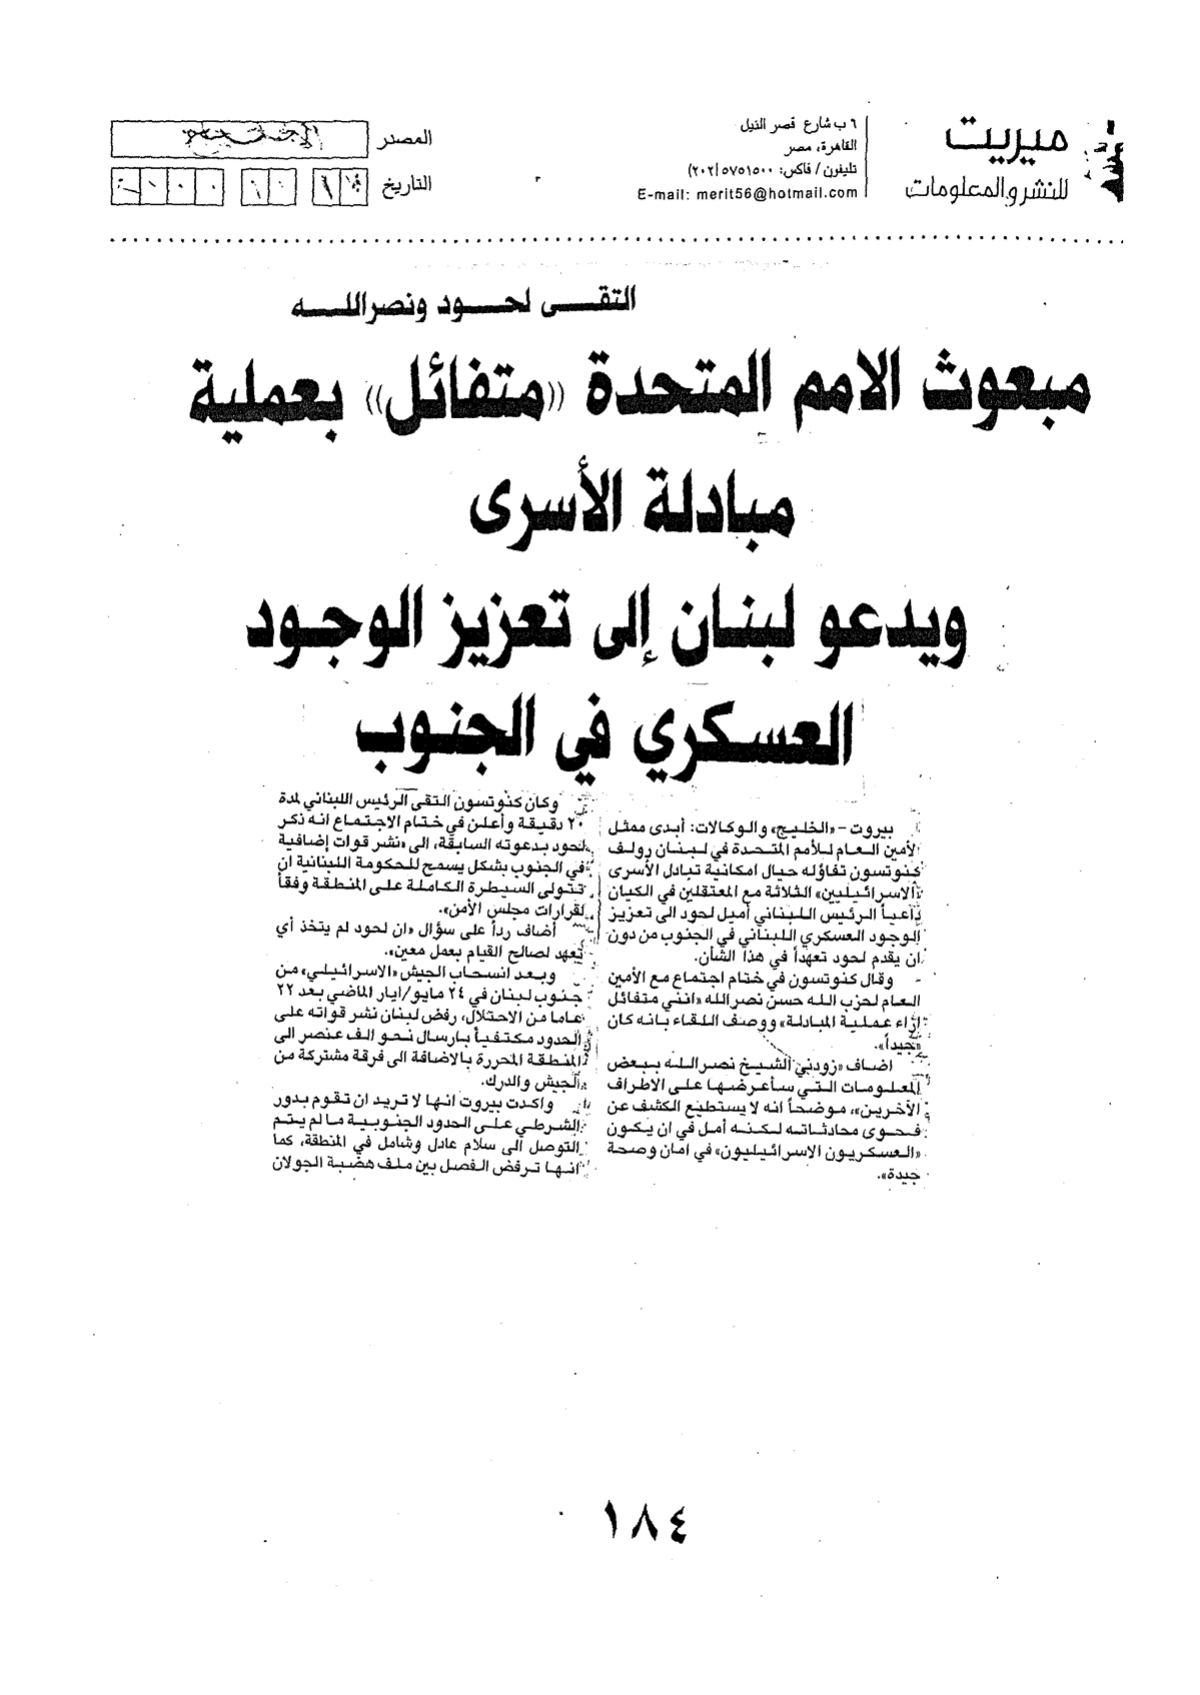 ميريت
للنشر والمعلومات
٦ ب شارع قصر النيل
القاهرة، مصر
تليفون / فاكس: ٥٧٥١٥٠٠ (٢٠٢)
E-mail: merit56@hotmail.com
المصدر
التاريخ
التقى لحود ونصرالله
مبعوث الامم المتحدة «متفائل» بعملية
مبادلة الأسرى
ويدعو لبنان إلى تعزيز الوجود
العسكري في الجنوب
بيروت - «الخليج» والوكالات: أبدى ممثل
الأمين العام للأمم المتحدة في لبنان رولف
كنوتسون تفاؤله حيال امكانية تبادل الأسرى
«الاسرائيليين» الثلاثة مع المعتقلين في الكيان
داعياً الرئيس اللبناني أميل لحود الى تعزيز
الوجود العسكري اللبناني في الجنوب من دون
ان يقدم لحود تعهداً في هذا الشأن.
وقال كنوتسون في ختام اجتماع مع الأمين
العام لحزب الله حسن نصر الله «انني متفائل
ازاء عملية المبادلة» ووصف اللقاء بانه كان
«جيداً».
اضاف «زودني الشيخ نصر الله ببعض
المعلومات التي سأعرضها على الاطراف
الآخرين»، موضحاً انه لا يستطيع الكشف عن
فحوى محادثاته لكنه أمل في ان يكون
«العسكريون الاسرائيليون» في امان وصحة
جيدة».
وكان كنوتسون التقى الرئيس اللبناني لمدة
٢٠ دقيقة وأعلن في ختام الاجتماع انه ذكر
لحود بدعوته السابقة، الى «نشر قوات إضافية
في الجنوب بشكل يسمح للحكومة اللبنانية ان
تتولى السيطرة الكاملة على المنطقة وفقاً
لقرارات مجلس الأمن».
أضاف رداً على سؤال «ان لحود لم يتخذ أي
تعهد لصالح القيام بعمل معين».
وبعد انسحاب الجيش «الاسرائيلي» من
جنوب لبنان في ٢٤ مايو/ايار الماضي بعد ٢٢
عاما من الاحتلال، رفض لبنان نشر قواته على
الحدود مكتفياً بارسال نحو الف عنصر الى
المنطقة المحررة بالاضافة الى فرقة مشتركة من
الجيش والدرك.
واكدت بيروت انها لا تريد ان تقوم بدور
الشرطي على الحدود الجنوبية ما لم يتم
التوصل الى سلام عادل وشامل في المنطقة، كما
انها ترفض الفصل بين ملف هضبة الجولان
١٨٤